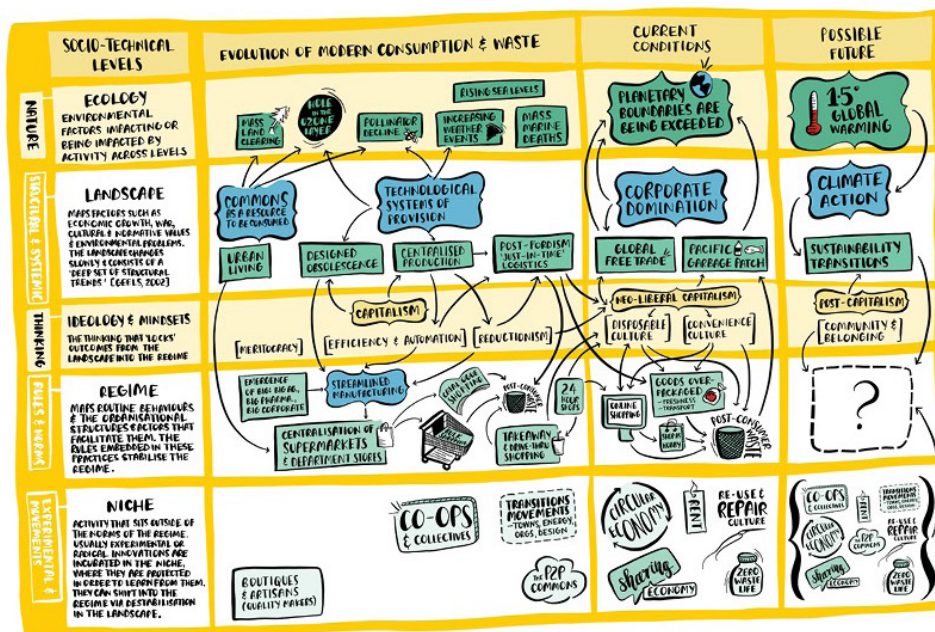 SOCIO-TECHNICAL
LEVELS
EVOLUTION OF MODERN CONSUMPTION & WASTE
CURRENT
CONDITIONS
POSSIBLE
FUTURE
NATURE
ECOLOGY
ENVIRONMENTAL
FACTORS IMPACTING OR
BEING IMPACTED BY
ACTIVITY ACROSS LEVELS
MASS
LAND
CLEARING
HOLE
IN THE
OZONE
LAYER
POLLINATOR
DECLINE
RISING SEA LEVELS
INCREASING
WEATHER
EVENTS
MASS
MARINE
DEATHS
PLANETARY
BOUNDARIES ARE
BEING EXCEEDED
1.5°
GLOBAL
WARMING
STRUCTURAL & SYSTEMIC
LANDSCAPE
MAPS FACTORS SUCH AS
ECONOMIC GROWTH, WAR,
CULTURAL & NORMATIVE VALUES
& ENVIRONMENTAL PROBLEMS.
THE LANDSCAPE CHANGES
SLOWLY & CONSISTS OF A
'DEEP SET OF STRUCTURAL
TRENDS' (GEELS, 2002)
COMMONS
AS A RESOURCE
TO BE CONSUMED
TECHNOLOGICAL
SYSTEMS OF
PROVISION
CORPORATE
DOMINATION
CLIMATE
ACTION
URBAN
LIVING
DESIGNED
OBSOLESCENCE
CENTRALISED
PRODUCTION
POST-FORDISM
'JUST-IN-TIME'
LOGISTICS
GLOBAL
FREE TRADE
PACIFIC
GARBAGE PATCH
SUSTAINABILITY
TRANSITIONS
THINKING
IDEOLOGY & MINDSETS
THE THINKING THAT 'LOCKS'
OUTCOMES FROM THE
LANDSCAPE INTO THE REGIME
CAPITALISM
[MERITOCRACY]
[EFFICIENCY & AUTOMATION]
[REDUCTIONISM]
NEO-LIBERAL CAPITALISM
[DISPOSABLE
CULTURE]
[CONVENIENCE
CULTURE]
POST-CAPITALISM
[COMMUNITY &
BELONGING]
RULES & NORMS
REGIME
MAPS ROUTINE BEHAVIOURS
& THE ORGANISATIONAL
STRUCTURES FACTORS THAT
FACILITATE THEM. THE
RULES EMBEDDED IN THESE
PRACTICES STABILISE THE
REGIME.
EMERGENCE
OF BIG: BIG AG,
BIG PHARMA,
BIG CORPORATE
STREAMLINED
MANUFACTURING
SHOPPING
POST-CONSUMER
WASTE
24
HOUR
SHOPS
CENTRALISATION OF
SUPERMARKETS
& DEPARTMENT STORES
TAKEAWAY
& DRIVE-THRU
SHOPPING
ONLINE
SHOPPING
GOODS OVER-
PACKAGED
- FRESHNESS
- TRANSPORT
SHOP AS
HOBBY
POST-CONSUMER
WASTE
?
EXPERIMENTAL &
MOVEMENTS
NICHE
ACTIVITY THAT SITS OUTSIDE OF
THE NORMS OF THE REGIME.
USUALLY EXPERIMENTAL OR
RADICAL INNOVATIONS ARE
INCUBATED IN THE NICHE,
WHERE THEY ARE PROTECTED
IN ORDER TO LEARN FROM THEM.
THEY CAN SHIFT INTO THE
REGIME VIA DESTABILISATION
IN THE LANDSCAPE.
BOUTIQUES
& ARTISANS
(QUALITY MAKERS)
CO-OPS
& COLLECTIVES
TRANSITIONS
MOVEMENTS
- TOWNS, ENERGY,
ORGS, DESIGN
THE P2P
COMMONS
CIRCULAR
ECONOMY
RENT
RE-USE &
REPAIR
CULTURE
Sharing
ECONOMY
ZERO
WASTE
LIFE
CO-OPS
& COLLECTIVES
TRANSITIONS
MOVEMENTS
- TOWNS, ENERGY,
ORGS, DESIGN
CIRCULAR
ECONOMY
RENT
RE-USE &
REPAIR
CULTURE
THE P2P
COMMONS
Sharing
ECONOMY
ZERO
WASTE
LIFE